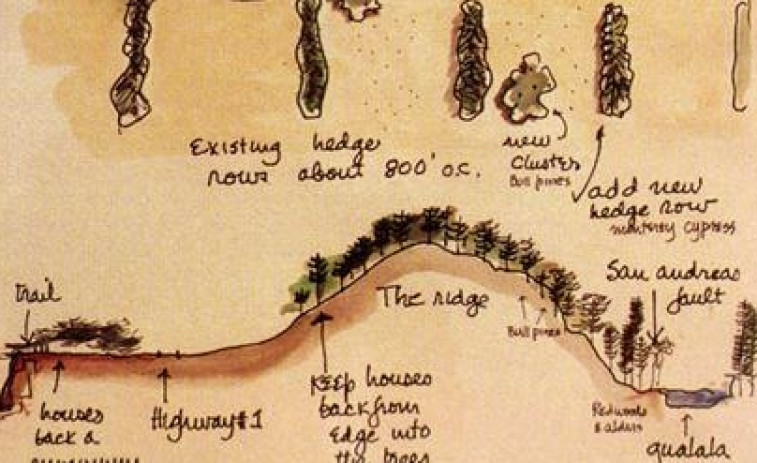 Existing hedge
rows about 800' o.c.
new
cluster
Bull pines
add new
hedge row
monterey cypress
San andreas
fault
trail
The ridge
Bull pines
houses
back a
Highway #1
Keep houses
back from
Edge into
the trees
Redwoods
& alders
gualala